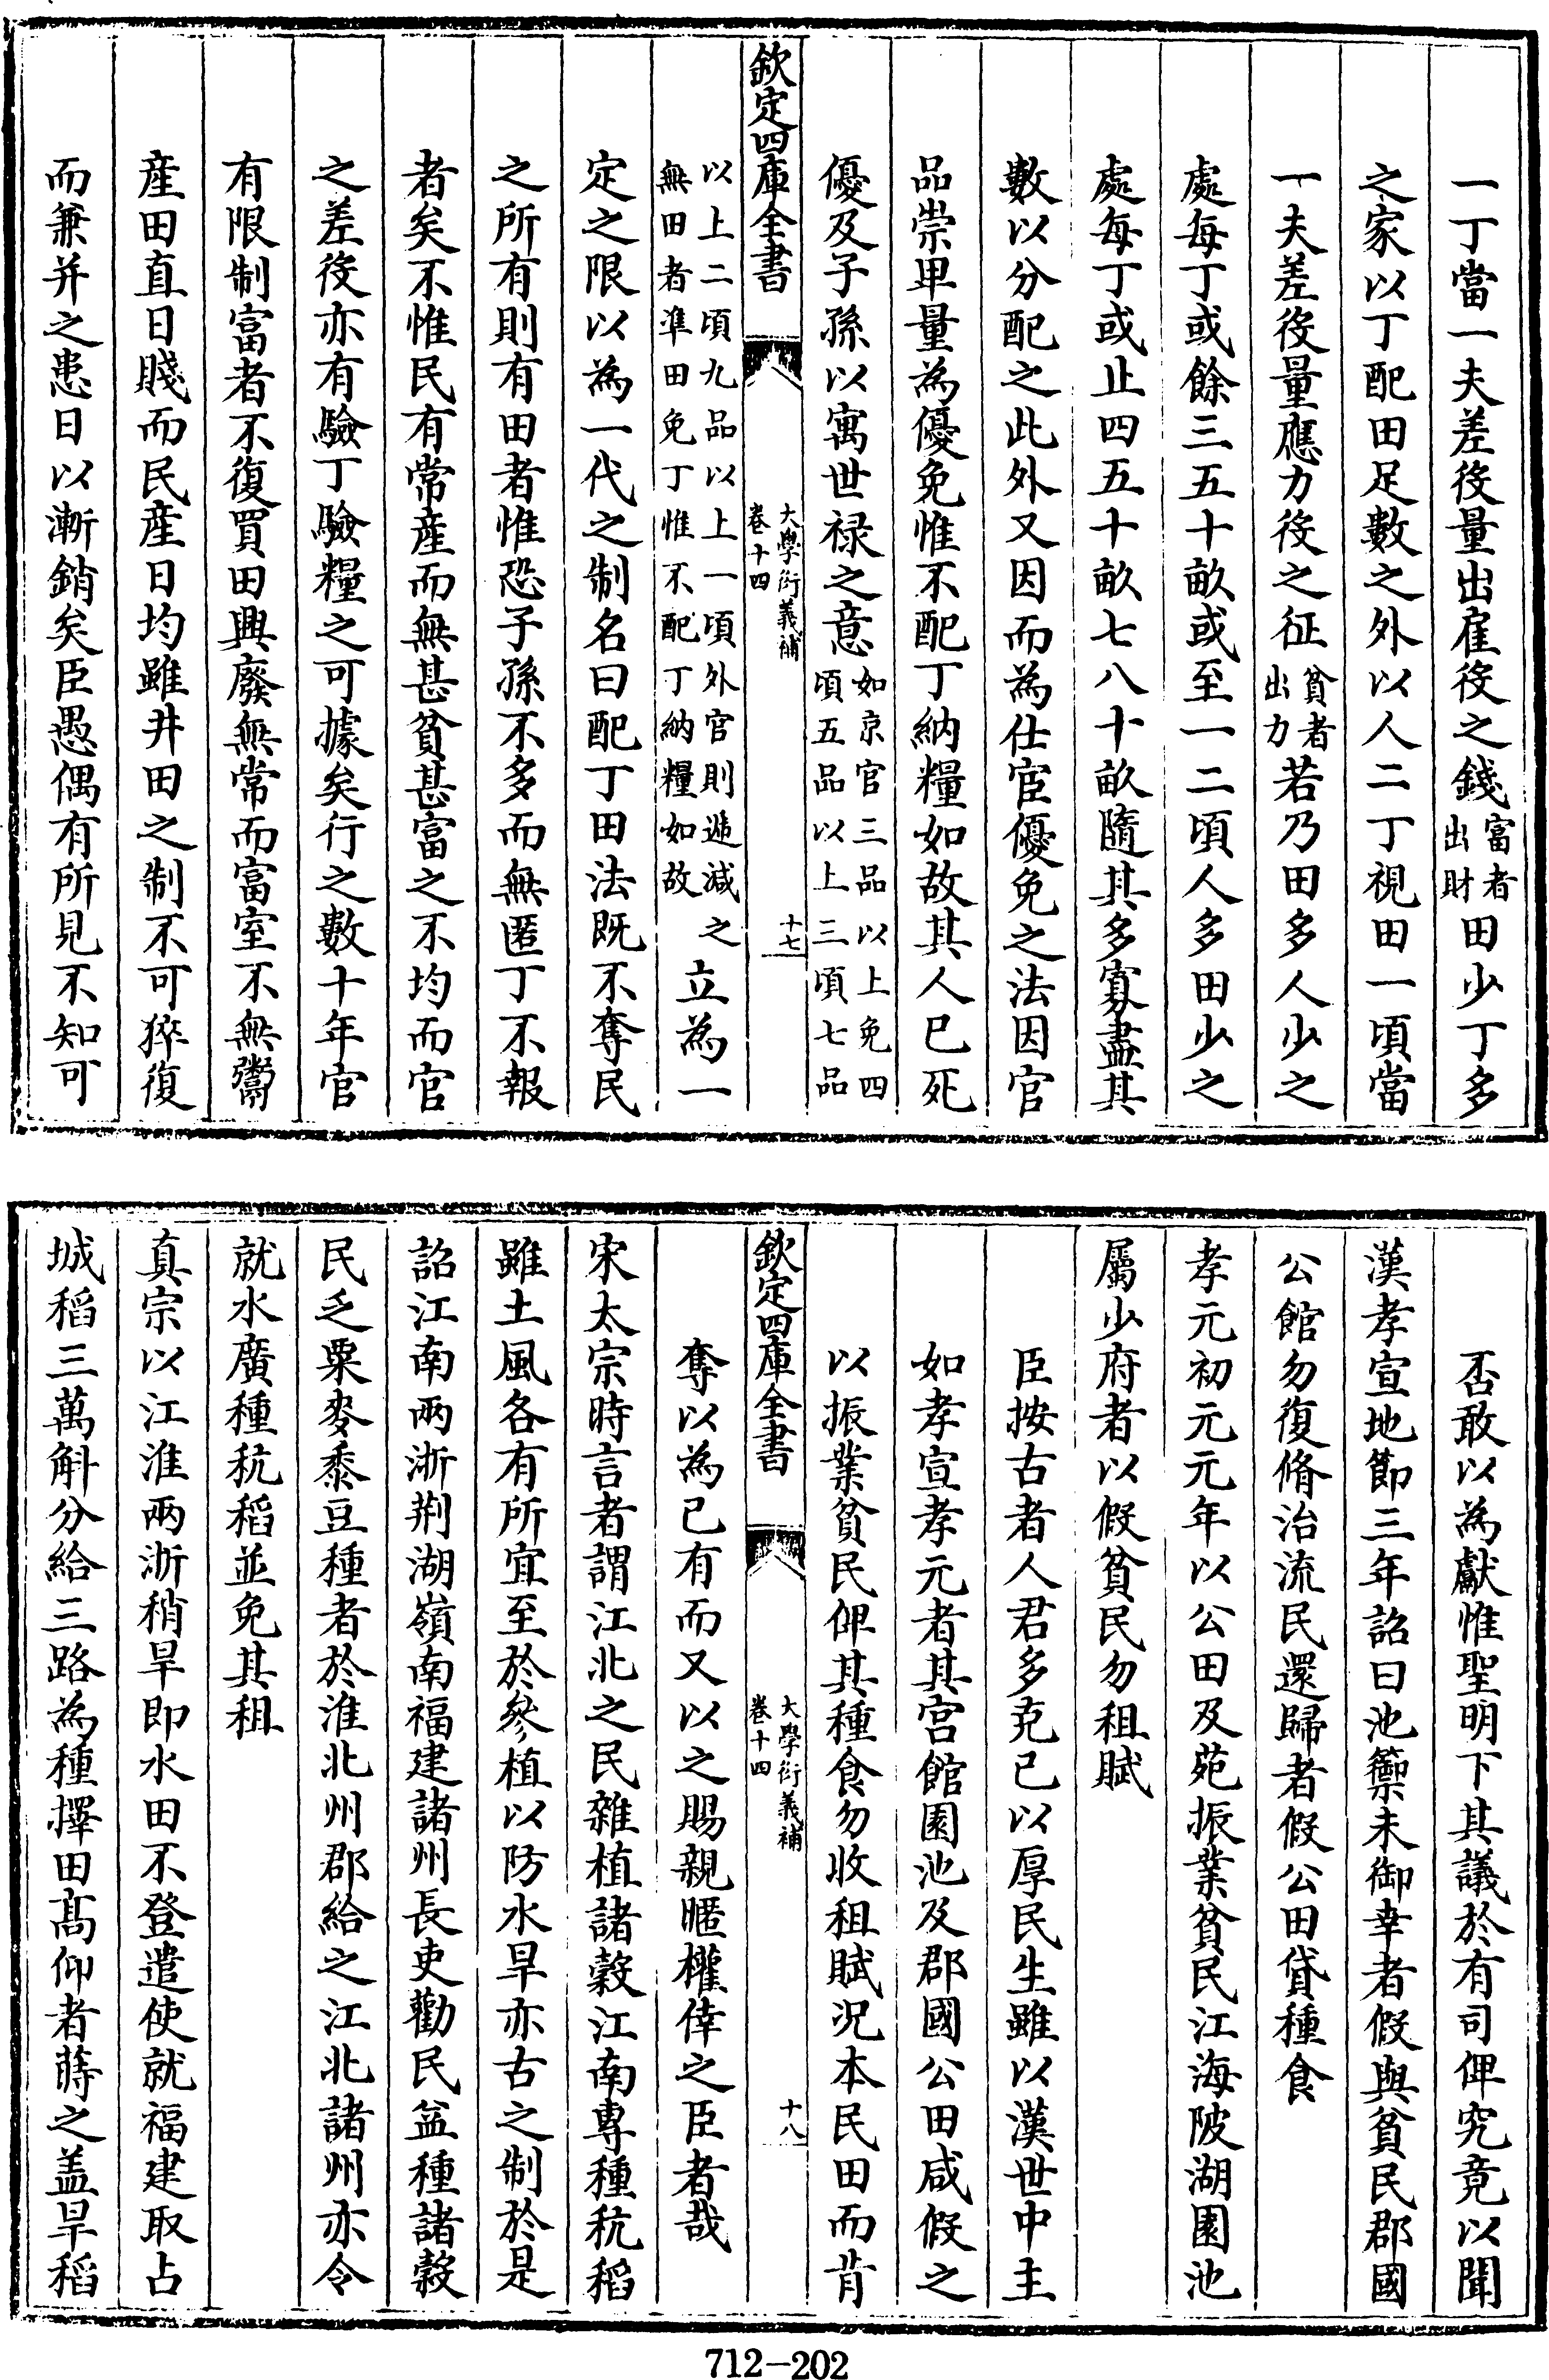 一丁當一夫差役量出雇役之錢富者出財田少丁多
之家以丁配田足數之外以人二丁視田一頃當
一夫差役量應力役之征貧者出力若乃田多人少之
處每丁或餘三五十畝或至一二頃人多田少之
處每丁或止四五十畝七八十畝隨其多寡盡其
數以分配之此外又因而為仕宦優免之法因官
品崇卑量為優免惟不配丁納糧如故其人已死
優及子孫以寓世禄之意如京官三品以上免四頃五品以上三頃七品
欽定四庫全書
大學衍義補
卷十四
十七
以上二頃九品以上一頃外官則遞減之無田者準田免丁惟不配丁納糧如故立為一
定之限以為一代之制名曰配丁田法既不奪民
之所有則有田者惟恐子孫不多而無匿丁不報
者矣不惟民有常産而無甚貧甚富之不均而官
之差役亦有驗丁驗糧之可據矣行之數十年官
有限制富者不復買田興廢無常而富室不無鬻
産田直日賤而民産日均雖井田之制不可猝復
而兼并之患日以漸銷矣臣愚偶有所見不知可
否敢以為獻惟聖明下其議於有司俾究竟以聞
漢孝宣地節三年詔曰池籞未御幸者假與貧民郡國
公館勿復脩治流民還歸者假公田貸種食
孝元初元元年以公田及苑振業貧民江海陂湖園池
屬少府者以假貧民勿租賦
臣按古者人君多克已以厚民生雖以漢世中主
如孝宣孝元者其宫館園池及郡國公田咸假之
以振業貧民俾其種食勿收租賦况本民田而肯
欽定四庫全書
大學衍義補
卷十四
十八
奪以為已有而又以之賜親暱權倖之臣者哉
宋太宗時言者謂江北之民雜植諸穀江南專種秔稻
雖土風各有所宜至於參植以防水旱亦古之制於是
詔江南兩浙荆湖嶺南福建諸州長吏勸民益種諸穀
民乏粟麥黍豆種者於淮北州郡給之江北諸州亦令
就水廣種秔稻並免其租
真宗以江淮兩浙稍旱即水田不登遣使就福建取占
城稻三萬斛分給三路為種擇田髙仰者蒔之盖旱稻
712-202